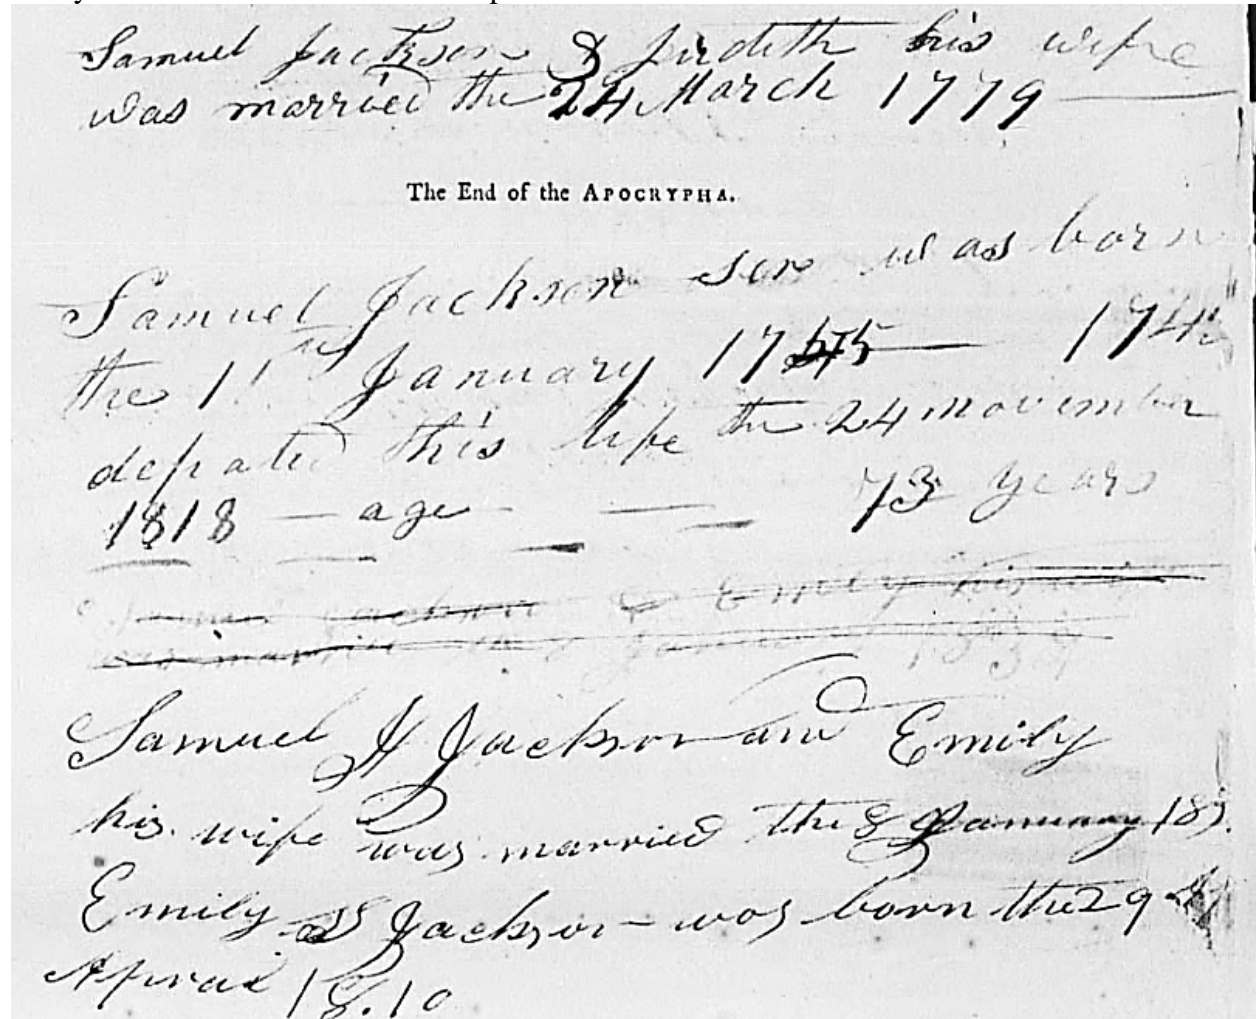 Samuel Jackson & Judith his wife
was married the 24 March 1779
The End of the APOCRYPHA.
Samuel Jackson sen was born
the 1st January 1745 — 174
depated this life the 24 November
1818 — age — 73 years
Jackson & Emily his wife
was married the 8 January 183
Samuel H Jackson and Emily
his wife was married the 8 January 183
Emily Jackson was born the 29
Apriel 1810